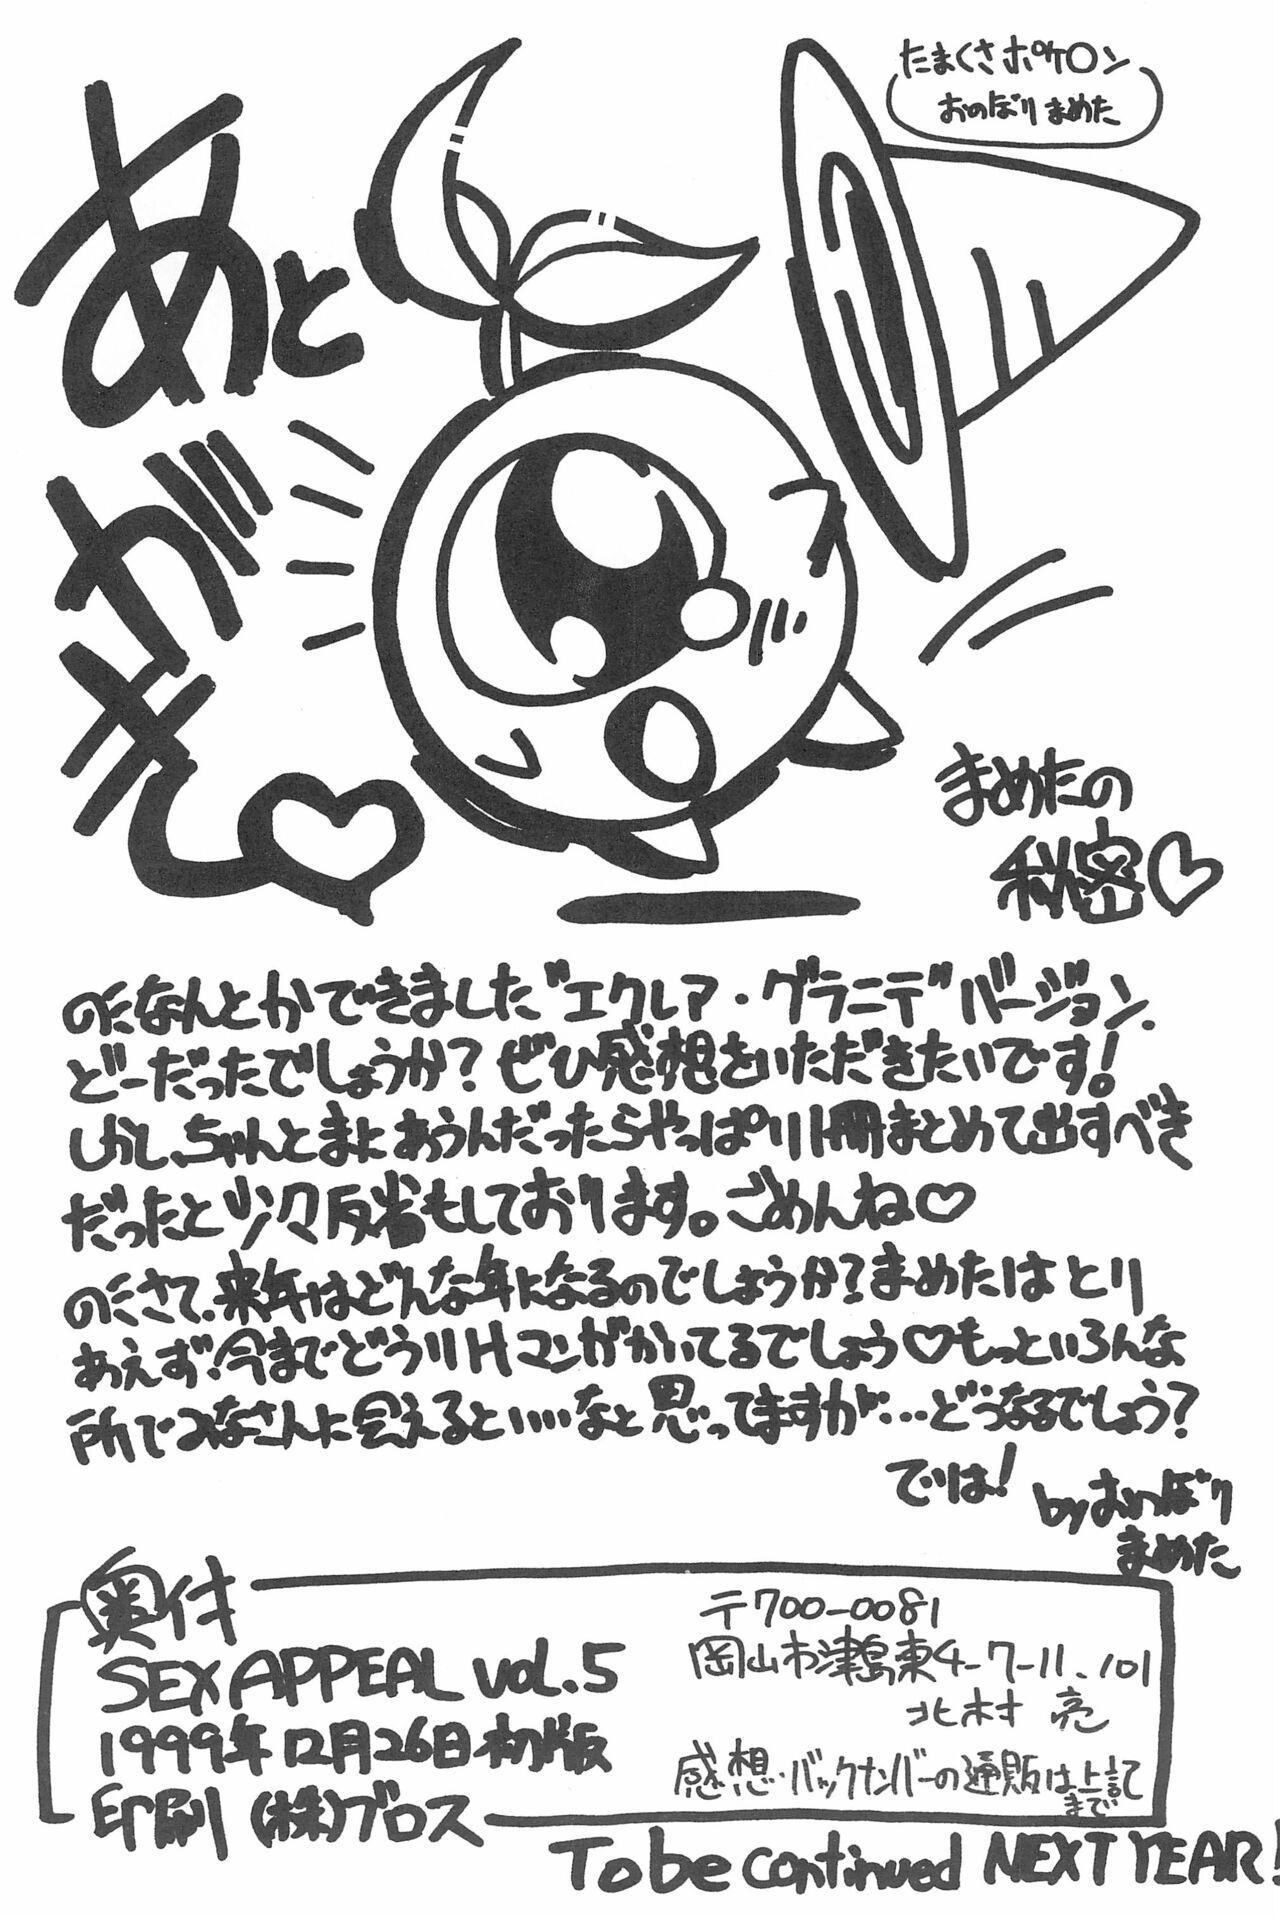 たまくさポケ〇ン
おのぼりまめた
あとがき♡
まめたの
秘密♡
のにゃなんとかできました"エクレア・グラニテ"バージョン.
どーだったでしょうか?ぜひ感想をいただきたいです!
しかし、ちゃんとまにあうんだったらやっぱり1冊まとめて出すべき
だったと少々反省もしております。ごめんね♡
さて、来年はどんな年になるのでしょうか?まめたはとり
あえず、今までどうりHマンガかいてるでしょう♡もっといろんな
所でみなさんに会えるといいなと思ってますが…どうなるでしょう?
では!
byおのぼり
まめた
奥付
SEX APPEAL vol.5
1999年12月26日初版
印刷(株)ブロス
〒700-0081
岡山市津島東4-7-11.101
北村 亮
感想・バックナンバーの通販は上記
まで
To be continued NEXT YEAR!